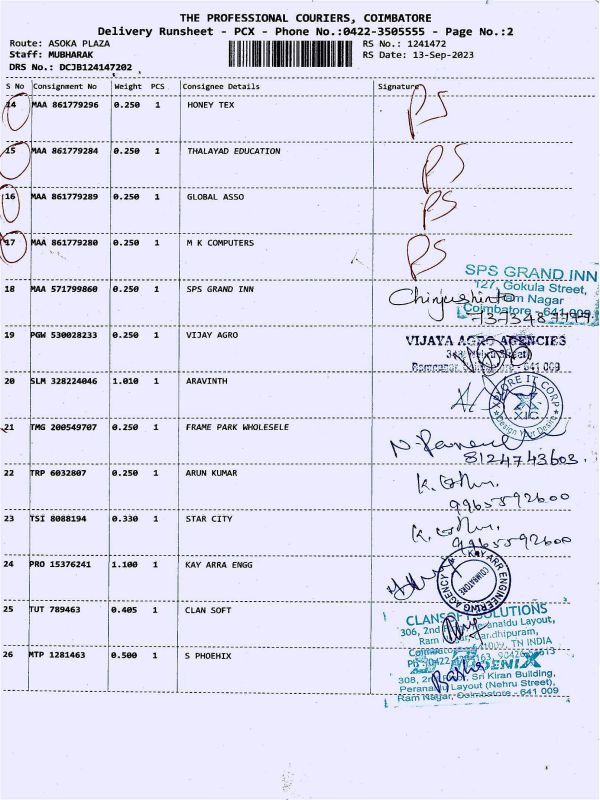 THE PROFESSIONAL COURIERS, COIMBATORE
Delivery Runsheet - PCX - Phone No.:0422-3505555 - Page No.:2
Route: ASOKA PLAZA RS No.: 1241472
Staff: MUBHARAK RS Date: 13-Sep-2023
DRS No.: DCJB124147202
S No Consignment No Weight PCS Consignee Details Signature
14 MAA 861779296 0.250 1 HONEY TEX PS
15 MAA 861779284 0.250 1 THALAYAD EDUCATION PS
16 MAA 861779289 0.250 1 GLOBAL ASSO PS
17 MAA 861779280 0.250 1 M K COMPUTERS PS
SPS GRAND INN
127, Gokula Street,
18 MAA 571799860 0.250 1 SPS GRAND INN
Ram Nagar
Coimbatore - 641 009
19 PGW 530028233 0.250 1 VIJAY AGRO VIJAYA AGRO AGENCIES
Nehru Street
Ramnagar, Coimbatore - 641 009
20 SLM 328224046 1.010 1 ARAVINTH XPLORE IT CORP
XIC
Design Your Desire
21 TMG 200549707 0.250 1 FRAME PARK WHOLESELE
8124743603.
22 TRP 6032807 0.250 1 ARUN KUMAR
9965592600
23 TSI 8088194 0.330 1 STAR CITY
9965592600
24 PRO 15376241 1.100 1 KAY ARRA ENGG KAY ARR ENGINEERING AGENCY
COIMBATORE
25 TUT 789463 0.405 1 CLAN SOFT CLANSOFT SOLUTIONS
306, 2nd Peranaidu Layout,
Ram Gandhipuram,
Coimbatore - 641009, TN INDIA
26 MTP 1281463 0.500 1 S PHOEHIX
308, 2nd Floor, Sri Kiran Building,
Peranaidu Layout (Nehru Street),
Ram Nagar, Coimbatore - 641 009